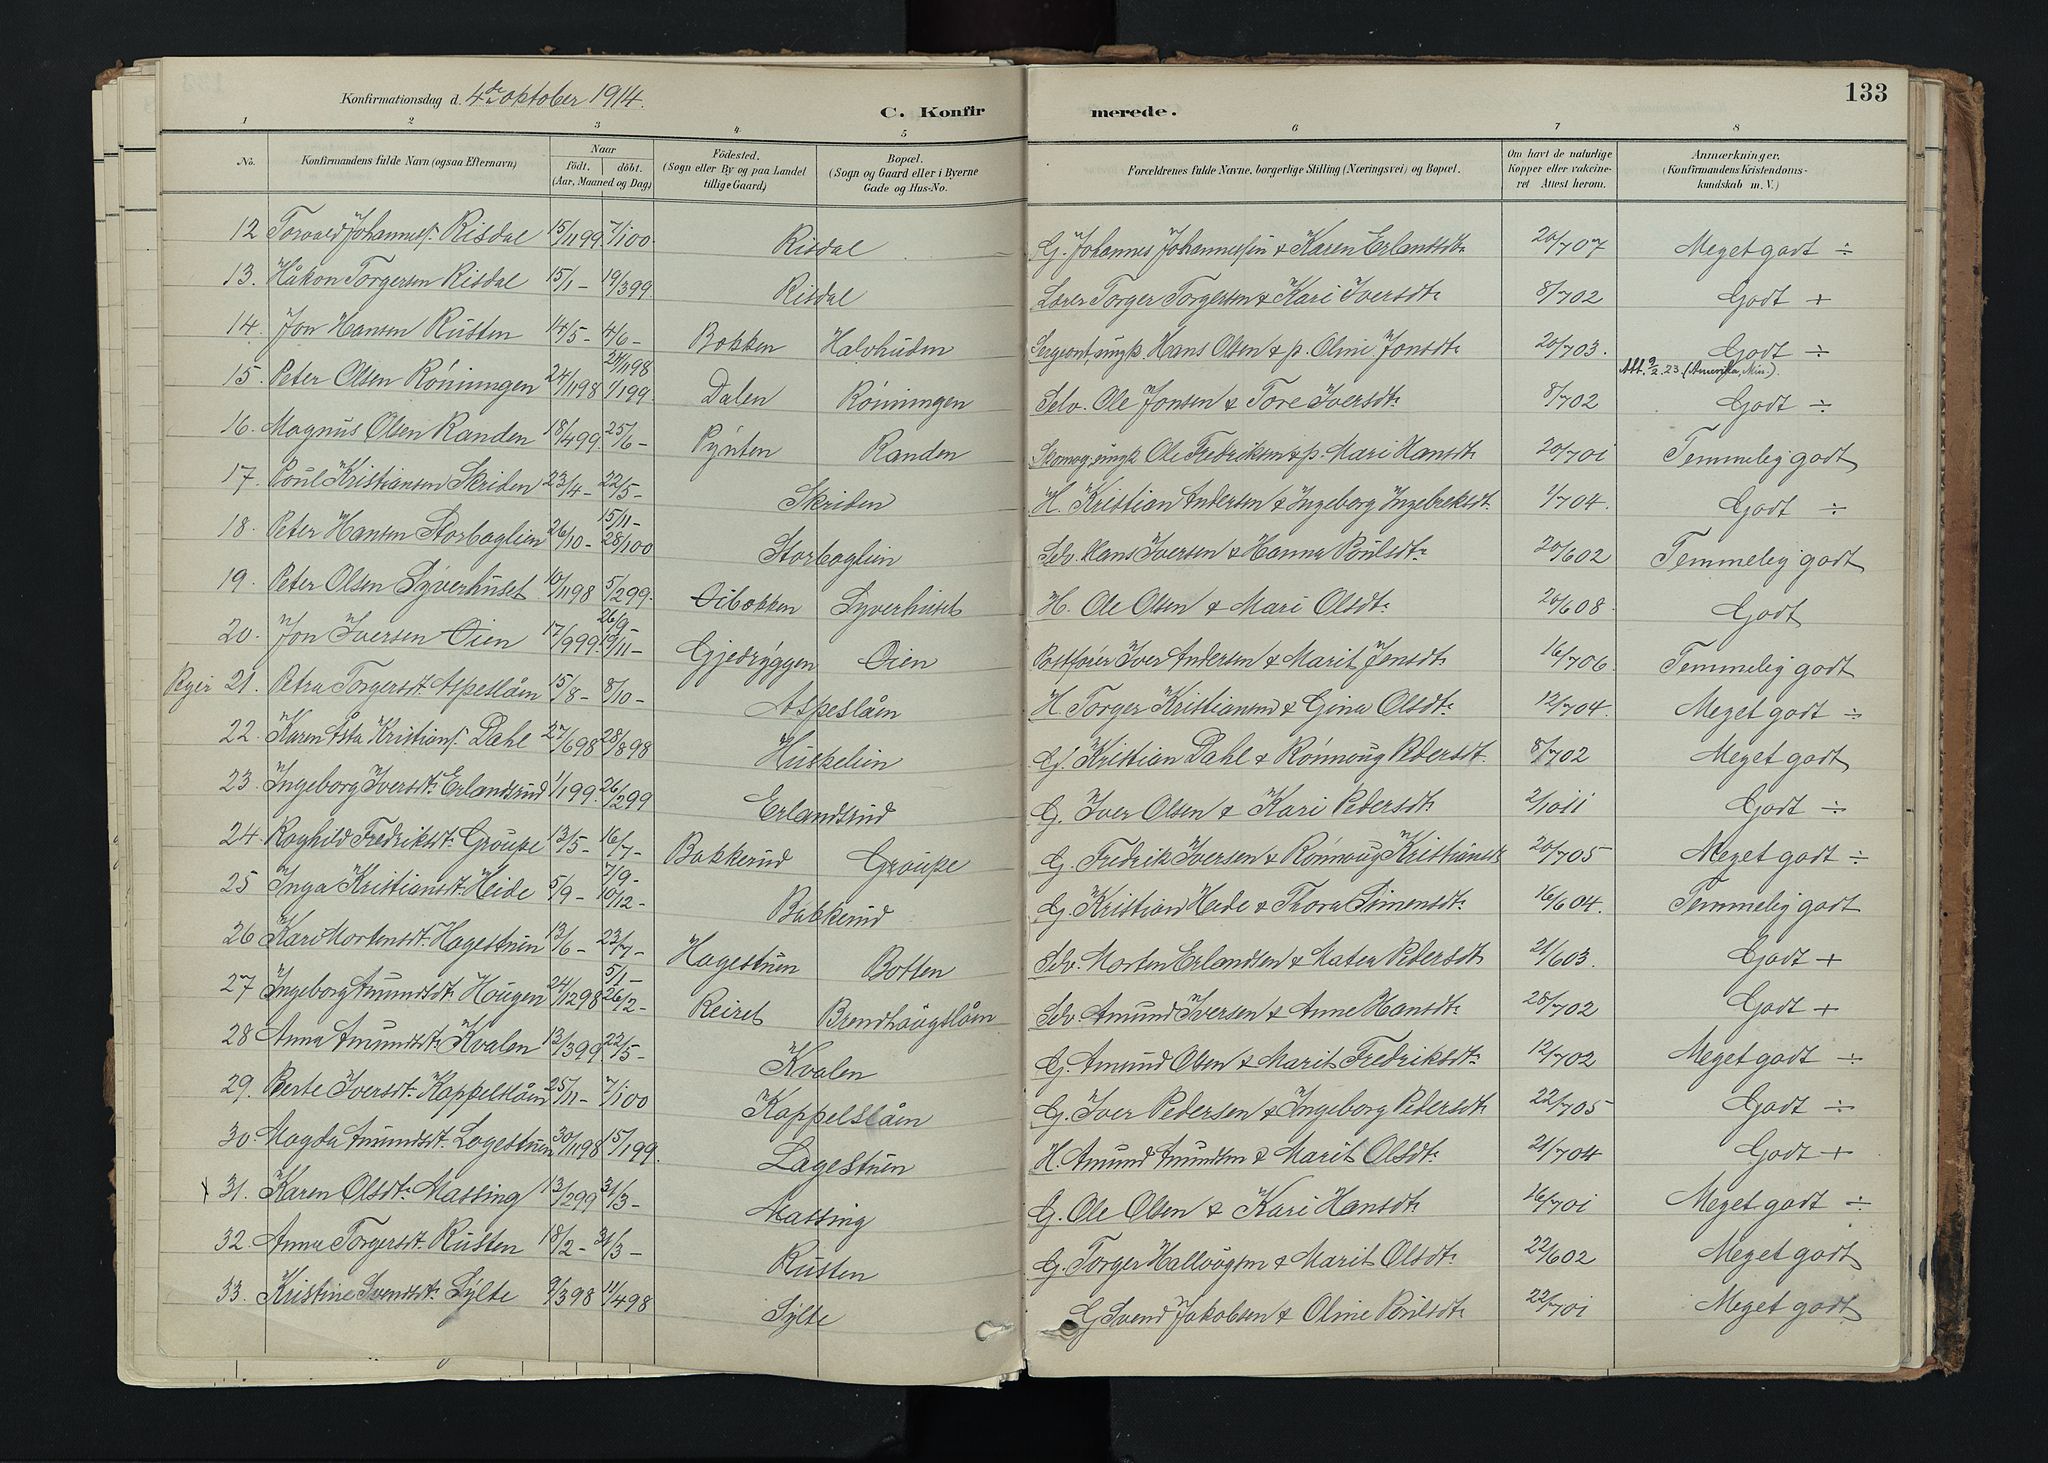 133
Konfirmationsdag d. 4de oktober 1914.
C. Konfirmerede.
1 2 3 4. 5 6 7 8
No. Konfirmandens fulde Navn (ogsaa Efternavn) Naar født. døbt. (Aar, Maaned og Dag) Fødested. (Sogn eller By og paa Landet tillige Gaard) Bopæl. (Sogn og Gaard eller i Byerne Gade og Hus-No. Forældrenes fulde Navne, borgerlige Stilling (Næringsvei) og Bopæl. Om havt de naturlige Kopper eller vakcineret Attest herom. Anmærkninger. (Konfirmandens Kristendomskundskab m. V.)
12 Torvald Johanness. Risdal 15/11 99 7/1 00. Risdal G. Johannes Johannessen & Karen Erlandsdt. 20/7 07 Meget godt ÷
13. Håkon Torgersen Risdal 15/1 - 19/3 99 Risdal Lærer Torger Torgersen & Kari Iversdt. 8/7 02 Godt +
14. Jon Hansen Rusten 14/5 - 4/6 - Bakken Halvhuden Sergeant, ungk. Hans Olsen & p. Oline Jonsdt. 20/7 03. Godt ÷
15. Peter Olsen Röningen 24/11 98 24/11 98 1/1 99 Dalen Röningen Selv. Ole Jonsen & Tore Iversdt. 8/7 02 Att. 9/2. 23 (Amerika, Min.). Godt ÷
16. Magnus Olsen Randen 18/4 99. 25/6 - Pynten Randen Skomag, ungk Ole Fredriksen & p. Mari Hansdt. 20/7 01 Temmelig godt
17. Poul Kristiansen Skriden 23/4 - 22/5 - Skriden H. Kristian Andersen & Ingeborg Ingebreksdt. 1/7 04. Godt ÷
18. Peter Hansen Storbaglien 26/10 - 15/11 - 28/1 00 Storbaglien Selv. Hans Iversen & Hanna Poulsdt. 20/6 02 Temmelig godt
19. Peter Olsen Syverhuset 10/11 98 5/2 99. Oibakken Syverhuset H. Ole Olsen & Mari Olsdt. 20/6 08. Godt
20. Jon Iversen Øien 17/9 99. 26/9 - 19/11 - Gjedryggen Øien Postfører Iver Andersen & Marit Jonsdt. 16/7 06. Temmelig godt
21. Petra Torgersdt. Aspeslåen 15/8 - 8/10 - Aspeslåen H. Torger Kristiansen & Gina Olsdt. 12/7 04. Meget godt ÷
22. Karen Åsta Kristians. Dahl 27/6 98 28/8 98 Huskelien G. Kristian Dahl & Rønnoug Pedersdt. 8/7 02 Meget godt
23. Ingeborg Iversdt. Erlandsrud 1/1 99. 26/2 99 Erlandsrud G. Iver Olsen & Kari Pedersdt. 2/10 11 Godt ÷
24. Raghild Fredriksdt. Groupe 13/5 - 16/7 - Bakkerud Groupe G. Fredrik Iversen & Rønnoug Kristiansd. 20/7 05 Meget godt ÷
25 Inga Kristiansdt. Heide 5/9 - 7/9 - 10/12 - Bakkerud G. Kristian Heide & Thora Simensdt. 16/6 04. Temmelig godt
26 Kari Mortensdt. Hagestuen 13/6 - 23/7 - Hagestuen Botten Selv. Morten Erlandsen & Mater Pedersdt 21/6 03. Godt +
27 Ingeborg Amundsdt. Hougen 24/12 98 5/1 - 26/2 - Reiret Brendhaugslåen Selv. Amund Iversen & Anne Hansdt. 28/7 02 Godt +
28 Anna Amundsdt. Kvalen 12/3 99 22/5 - Kvalen G. Amund Olsen & Marit Fredriksdt. 12/7 02 Meget godt ÷
29. Berte Iversdt. Kappelslåen 25/11 - 7/1 00 Kappelslåen G. Iver Pedersen & Ingeborg Pedersdt. 22/7 05 Godt ÷
30. Magda Amundsdt. Lagestuen 30/11 98 15/1 99. Lagestuen H. Amund Amundsen & Marit Olsdt. 21/7 04 Godt +
31. Karen Olsdt. Massing 13/2 99 31/3 - Massing G. Ole Olsen & Kari Hansdt. 16/7 01 Meget godt ÷
32. Anna Torgersdt. Rusten 18/2 - 31/3 - Rusten G. Torger Hallvogsen & Marit Olsdt. 22/6 02 Meget godt
33. Kristine Svendsdt. Sylte 9/3 98 11/4 98 Sylte G Svend Jakobsen & Oline Poulsdt. 22/7 01 Meget godt